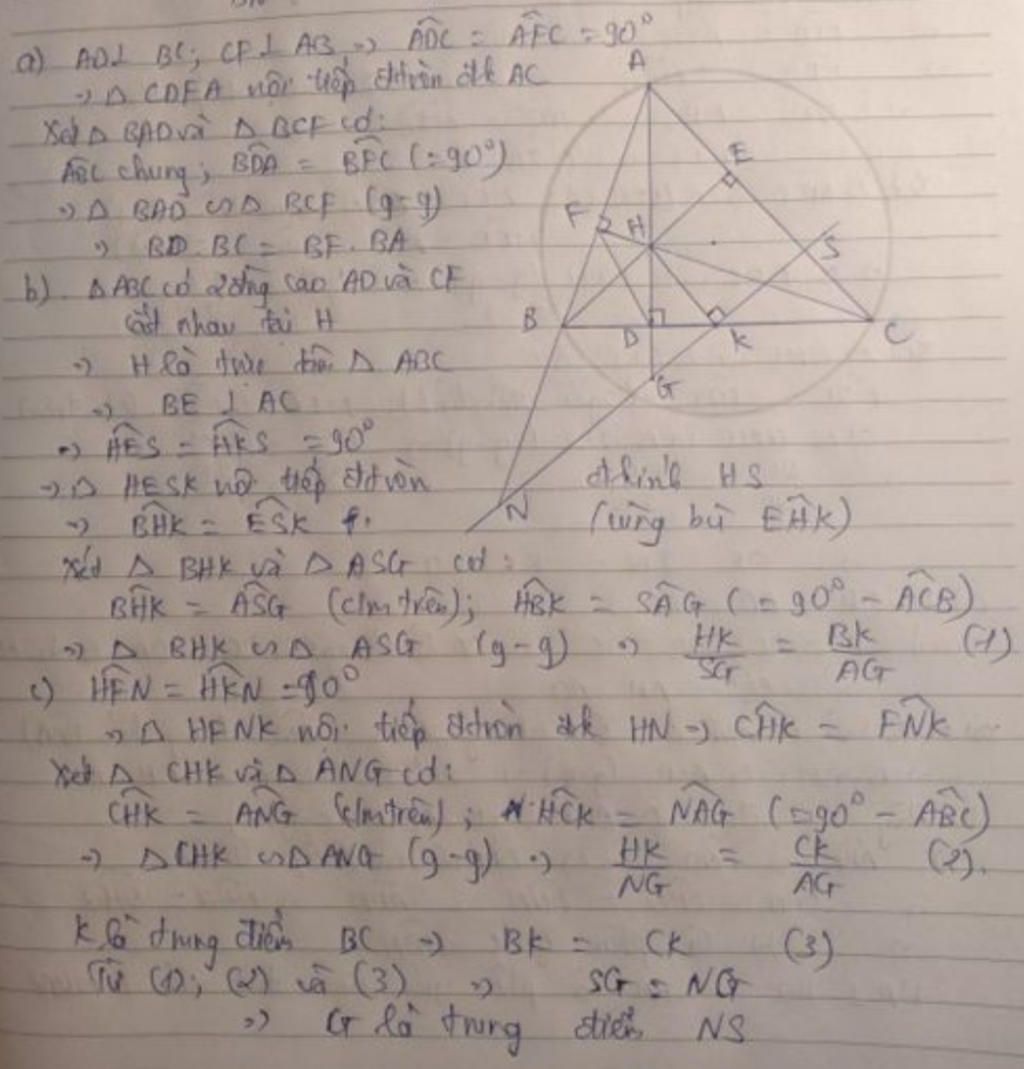 a) AD⊥ BC; CF⊥ AB → ADC = AFC = 90°
→ Δ CDFA nội tiếp đtròn đk AC
Xét Δ BAD và Δ BCF có:
ABC chung; BDA = BFC (=90°)
→ Δ BAD ∽ Δ BCF (g-g)
→ BD. BC = BF. BA
b). ΔABC có 2 đường cao AD và CF
cắt nhau tại H
→ H là trực tâm Δ ABC
→ BE ⊥ AC
→ HES = HKS = 90°
→ Δ HESK nội tiếp đtròn đkính HS
→ BHK = ESK (cùng bù EHK)
Xét Δ BHK và Δ ASG có:
BHK = ASG (clm trên); HBK = SAG (=90° - ACB)
→ Δ BHK ∽ Δ ASG (g-g) → HK/SG = BK/AG (1)
c) HFN = HKN = 90°
→ Δ HFNK nội tiếp đtròn đk HN → CHK = FNK
Xét Δ CHK và Δ ANG có:
CHK = ANG (clm trên); HCK = NAG (=90° - ABC)
→ Δ CHK ∽ Δ ANG (g-g) → HK/NG = CK/AG (2).
K là trung điểm BC → BK = CK (3)
Từ (1); (2) và (3) → SG = NG
→ G là trung điểm NS
A
E
F
H
S
B
D
K
C
G
N